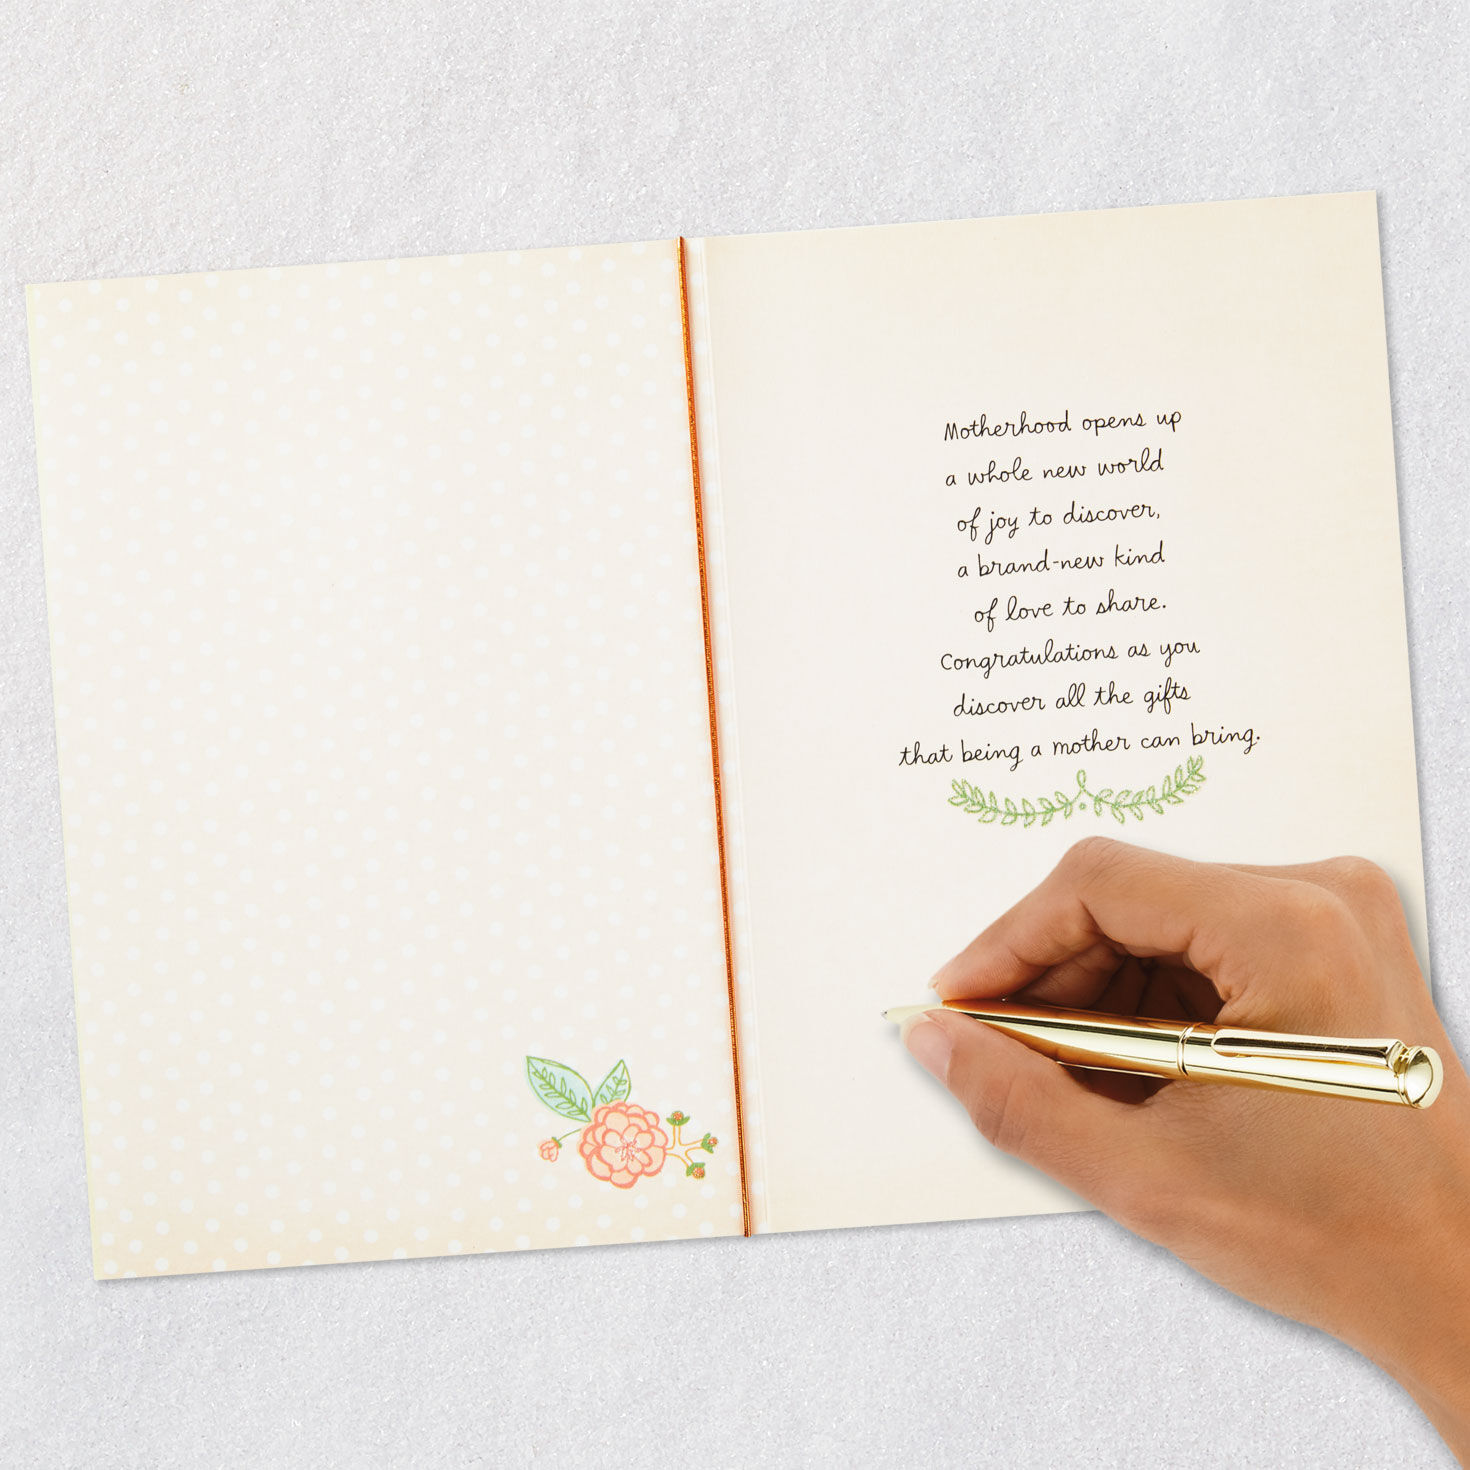 Motherhood opens up
a whole new world
of joy to discover,
a brand-new kind
of love to share.
Congratulations as you
discover all the gifts
that being a mother can bring.